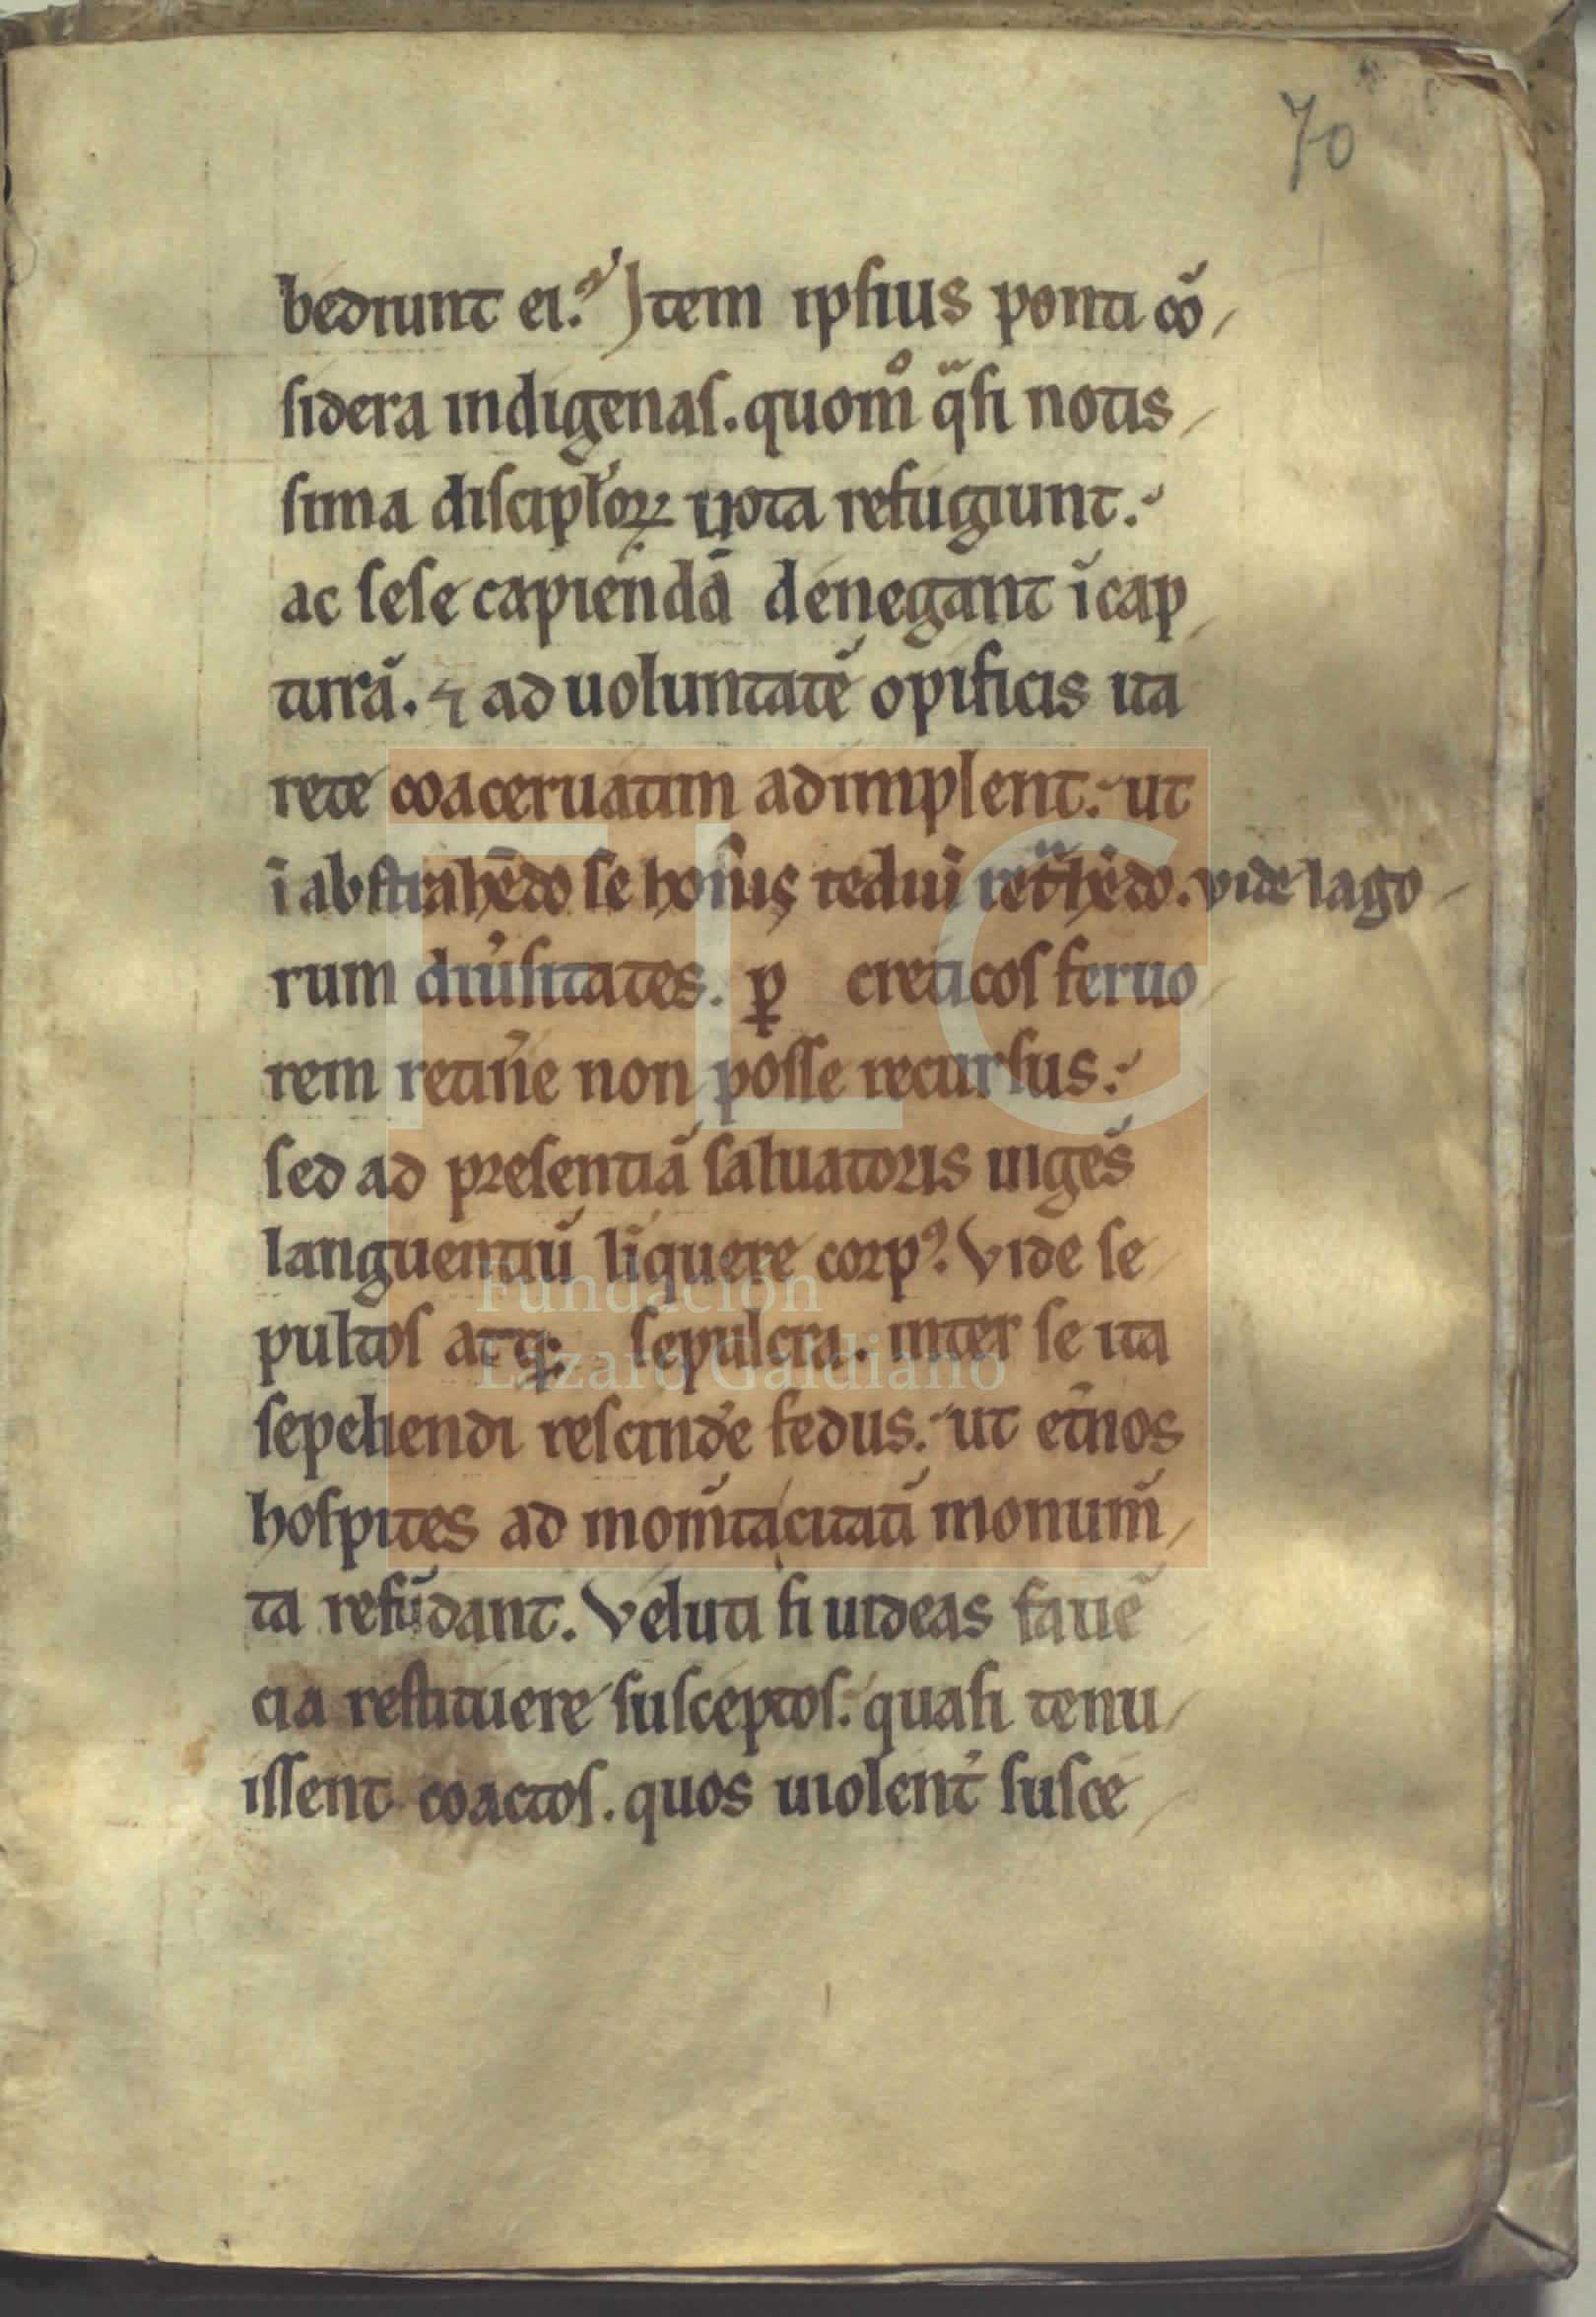 70
bediunt ei. Item ipsius ponti cō
sidera indigenas. quom̊ qͣsi notis
sima discipl'oꝝ uota refugiunt.
ac sese capiendā denegant ī cap
turā. ⁊ ad uoluntatē opificis ita
rete coaceruatim adimplent. ut
ī abstrahēdo se retͣhēdo. vide lago
rum diu'sitates. ꝑ creticos feruo
rem retin̄e non posse recursus.
sed ad presentiā saluatoris uigēs
languentiū līquere corpꝰ. Vide se
pultos atqꝫ sepulcra. inter se ita
sepeliendi rescind'e fedus. ut et'nos
hospites ad mom̄tacitatī monum̄
ta refūdant. Veluti si uideas faue
cia restituere susceptos. quasi tenu
issent coactos. quos uiolent' susce
Fundación
Lázaro Galdiano
FLG